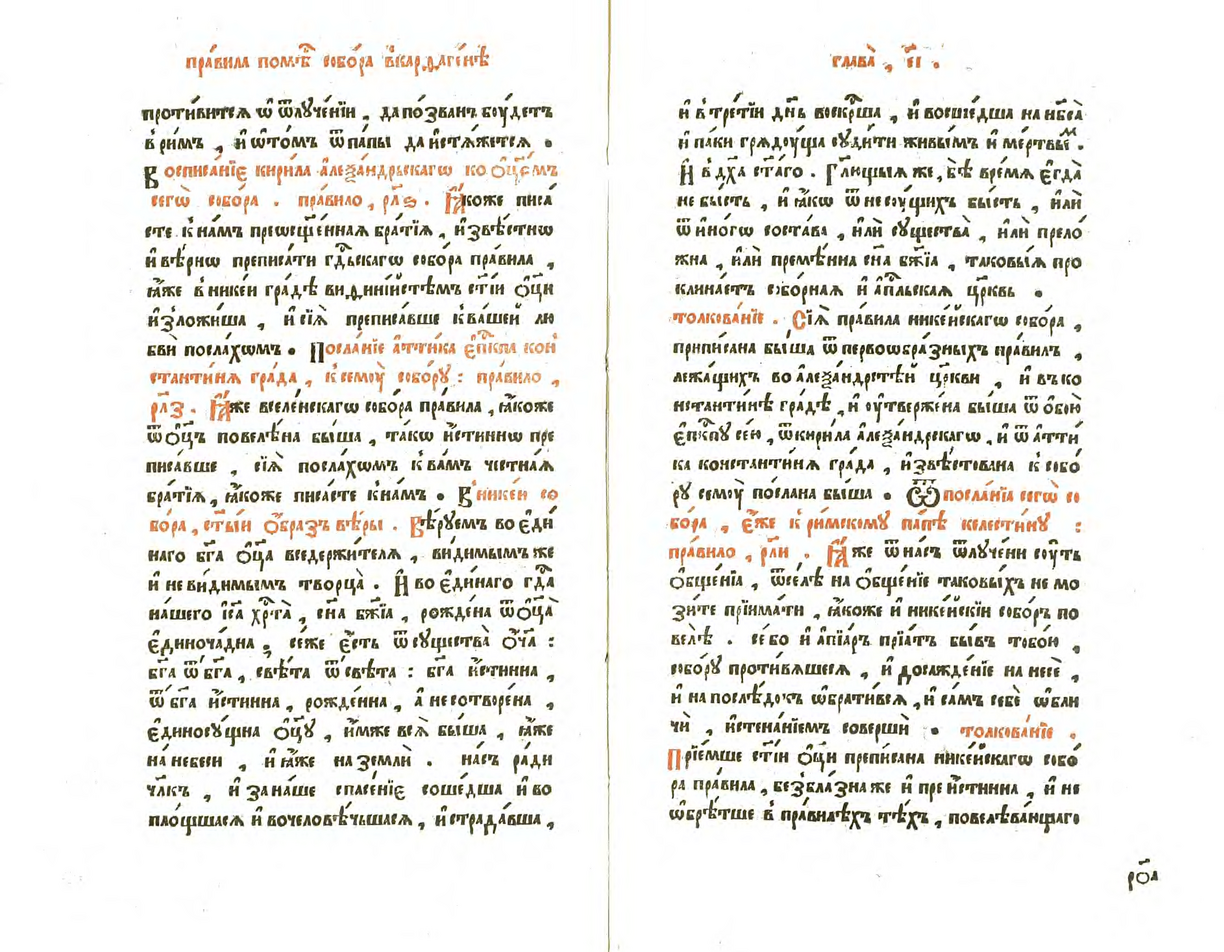 пра́вила помѣ́ⷭ собо́ра и҆́же вкарѳаге́нѣ
проти́витсѧ ѡ҆ ѿлꙋче́нїи , да позва́нъ бꙋ́детъ
в ри́мъ , и҆ ѡ҆то́мъ ѿ па́пы да и҆стѧ́жетсѧ .
Восписа́нїе кири́ла а҆леѯа́ндрьскагѡ ко ѻ҆ц҃е́мъ
сегѡ̀ собо́ра . пра́вило , рл҃ѕ . Ꙗ҆́коже писа́
сте к на́мъ преѡсщ҃е́ннаѧ бра́тїѧ , и҆звѣ́стнѡ
и҆ вѣ́рнѡ преписа́ти гдⷭ҇ьскагѡ собо́ра пра́вила ,
ꙗ҆́же в нике́и гра́дѣ виѳини́йстѣмъ ст҃і́и ѻ҆ц҃ы̀
и҆зложи́ша , и҆ сїѧ̀ преписа́вше к ва́шей лю
бви̇ посла́хѡмъ . Посла́нїе а҆́ттика є҆пⷭ҇кпа кон
стантинѧ гра́да , к семꙋ̀ собо́рꙋ : пра́вило ,
рл҃з . Ꙗ҆́же вселе́нскагѡ собо́ра пра́вила , ꙗ҆́коже
ѿ ѻ҆ц҃ъ повелѣ́на бы́ша , та́кѡ и҆́стиннѡ пре
писа́вше , сїѧ̀ посла́хѡмъ к ва́мъ честна́ѧ
бра́тїѧ , ꙗ҆́коже писа́сте к на́мъ . В нике́и со
бо́ра , ст҃ы́й ѻ҆́бразъ вѣ́ры . Вѣ́рꙋемъ во є҆ди́
наго бг҃а ѻ҆ц҃а̀ вседержи́телѧ , ви́димымъ же
и҆ неви́димымъ творца̀ . И҆ во є҆ди́наго гдⷭ҇а
на́шего і҆с҃а хрⷭ҇та̀ , сн҃а бж҃їа , рожде́на ѿ ѻ҆ц҃а̀
є҆диноча́дна , се́же є҆́сть ѿ сꙋщества̀ ѻ҆́ч҃а :
бг҃а ѿ бг҃а , свѣ́та ѿ свѣ́та : бг҃а и҆́стинна ,
ѿ бг҃а и҆́стинна , рожде́нна , а҆ не сотворе́на ,
є҆диносꙋ́щна ѻ҆ц҃ꙋ̀ , и҆́мже всѧ̀ бы́ша , ꙗ҆́же
на небесѝ , и҆ ꙗ҆́же на землѝ . на́съ ра́ди
чл҃къ , и҆ за на́ше спасе́нїе соше́дша и҆ во
пло́щшасѧ и҆ вочеловѣ́чьшасѧ , и҆ страда́вша ,
глава̀ , є҃і .
и҆ в тре́тїи дн҃ь воскрⷭ҇ша , и҆ возше́дша на нб҃са̀
и҆ па́ки грѧдꙋ́ща сꙋди́ти живы́мъ и҆ ме́ртвыⷨ .
И҆ в дх҃а ст҃аго . Гл҃ющыѧ же , бѣ̀ вре́мѧ є҆гда̀
не бы́сть , и҆ ꙗ҆́кѡ ѿ не сꙋ́щихъ бы́сть , и҆лѝ
ѿ и҆но́гѡ соста́ва , и҆лѝ сꙋщества̀ , и҆лѝ прело́
жна , и҆лѝ премѣ́нна сн҃а бж҃їа , таковы́ѧ про
клина́етъ собо́рнаѧ и҆ а҆пⷭ҇льскаѧ цр҃квь .
толкова́нїе . Сїѧ̀ пра́вила нике́йскагѡ собо́ра ,
припи́сана бы́ша ѿ первоѡбра́зныхъ пра́вилъ ,
лежа́щихъ во а҆леѯандрі́стѣй цр҃кви , и҆ въ ко
нстантинѣ гра́дѣ , и҆ ᲂу҆твержена бы́ша ѿ ѻ҆бою̀
є҆пⷭ҇кпꙋ сею̀ , ѿ кири́ла а҆леѯа́ндрскагѡ , и҆ ѿ а҆тти́
ка константинѧ гра́да , и҆ звѣ́стована к собо́
рꙋ семꙋ̀ по́слана бы́ша . Ѿ посла́нїѧ сегѡ̀ со
бо́ра , є҆́же к ри́мскомꙋ па́пѣ келести́нꙋ :
пра́вило , рл҃и . Ꙗ҆́же ѿ на́съ ѿлꙋче́ни сꙋ́ть
ѻ҆бще́нїа , ѿсе́лѣ на ѻ҆бще́нїе таковы́хъ не мо
зи́те прїима́ти , ꙗ҆́коже и҆ нике́йскїи собо́ръ по
велѣ̀ . се́ бо и҆ а҆пїа́ръ прїѧ́тъ бы́въ тобо́ю ,
собо́рꙋ проти́вѧшесѧ , и҆ досажде́нїе нанесѐ ,
и҆ на послѣ́докъ ѡ҆брати́всѧ , и҆ са́мъ себѐ ѡ҆бли
чѝ , и҆ стена́нїемъ соверши̇ . толкова́нїе .
Прїе́мше ст҃і́и ѻ҆ц҃ы̀ препи́сана нике́йскагѡ собо́
ра пра́вила , без бла́зна же и҆ преи́стинна , и҆ не
ѡ҆брѣ́тше в пра́вилѣхъ тѣ́хъ , повелѣва́ющаго
ро҃а